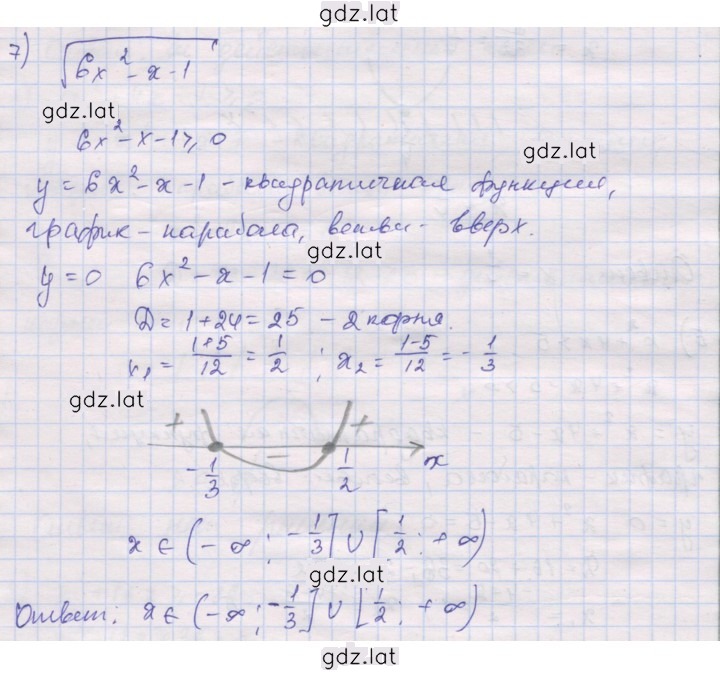 gdz.lat
7) √(6x² - x - 1)
gdz.lat
6x² - x - 1 ≥ 0
gdz.lat
y = 6x² - x - 1 - квадратичная функция,
график - парабола, ветви - вверх.
gdz.lat
y = 0   6x² - x - 1 = 0
D = 1 + 24 = 25 - 2 корня.
x₁ = (1+5)/12 = 1/2 ; x₂ = (1-5)/12 = -1/3
gdz.lat
+ − +
-1/3   1/2   x
x ∈ (-∞; -1/3] ∪ [1/2; +∞)
gdz.lat
Ответ: x ∈ (-∞; -1/3] ∪ [1/2; +∞)
gdz.lat